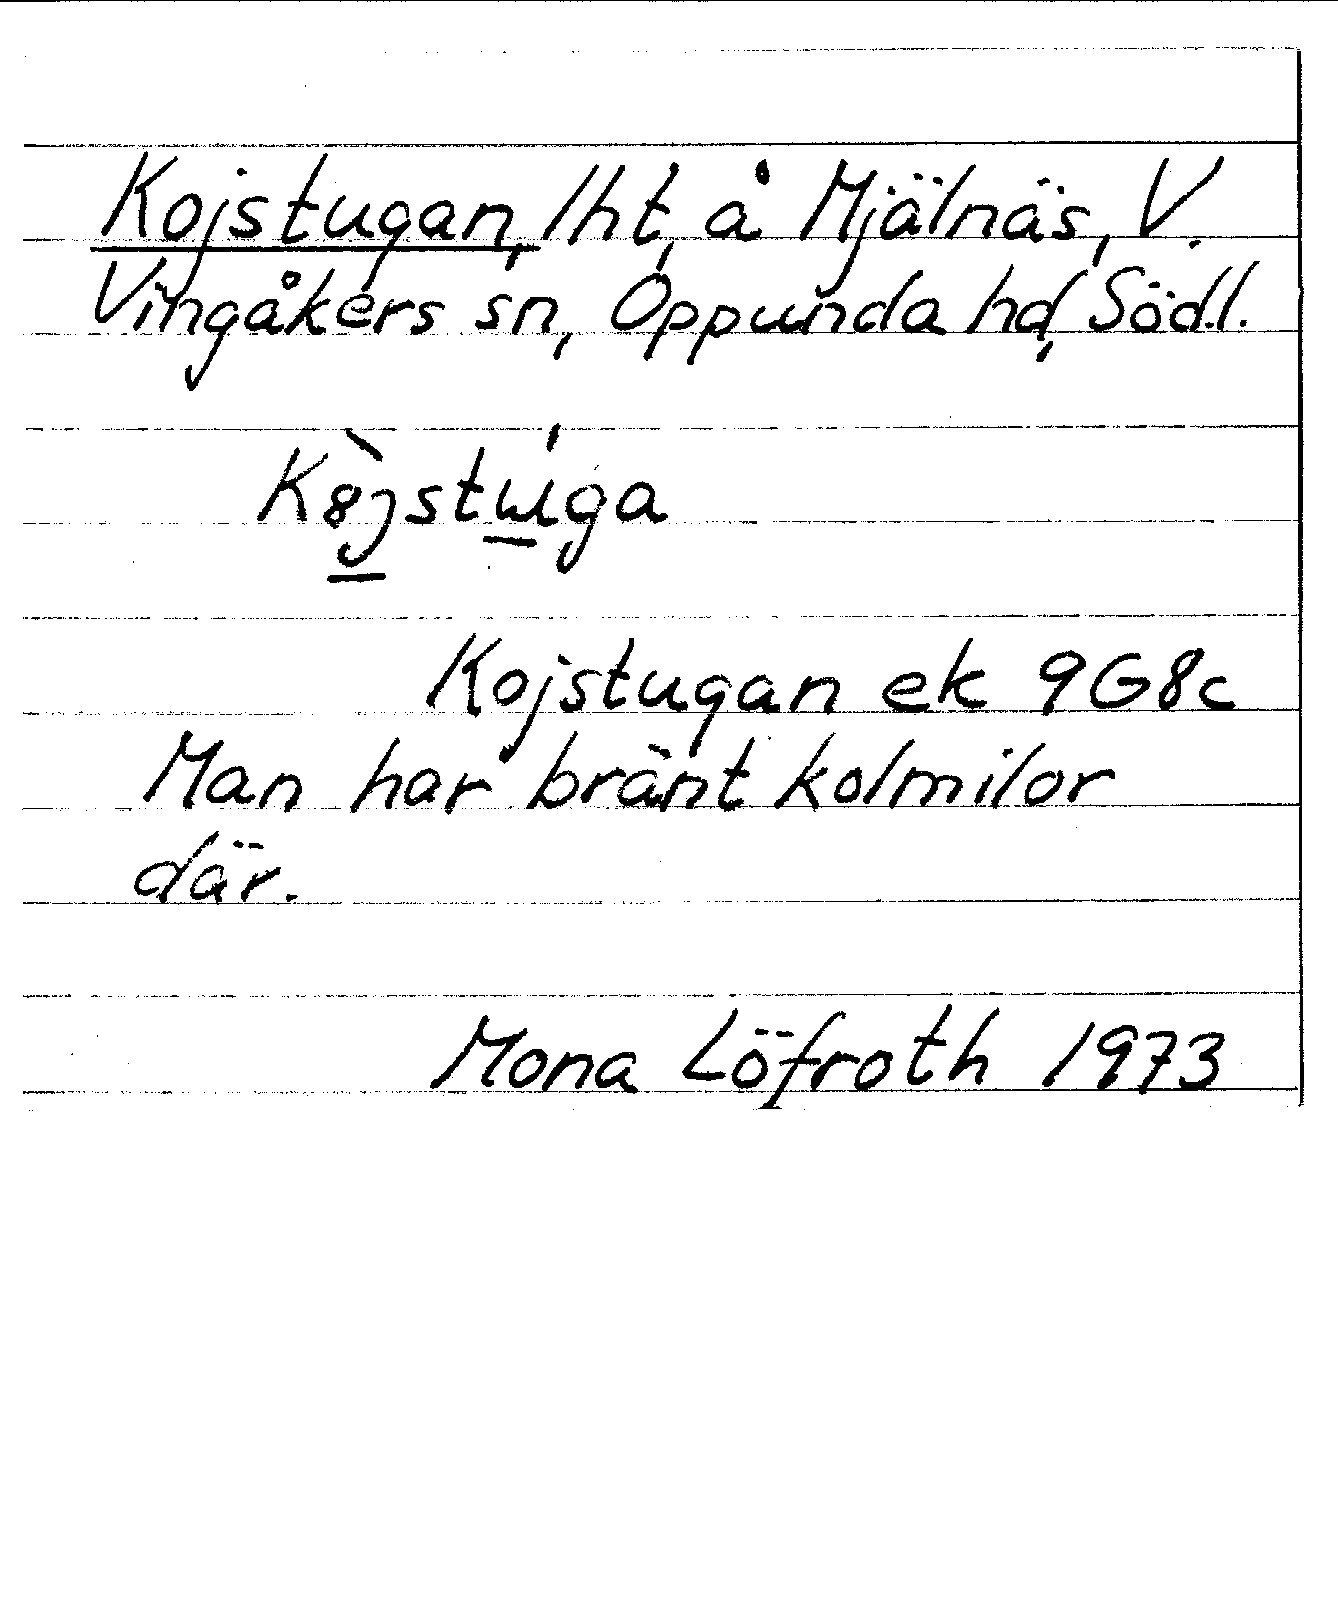 Kojstugan, lht, å Mjälnäs, V.
Vingåkers sn, Oppunda hd, Södl.
Kojstugan ek 9G8c
Man har bränt kolmilor
där.
Mona Löfroth 1973